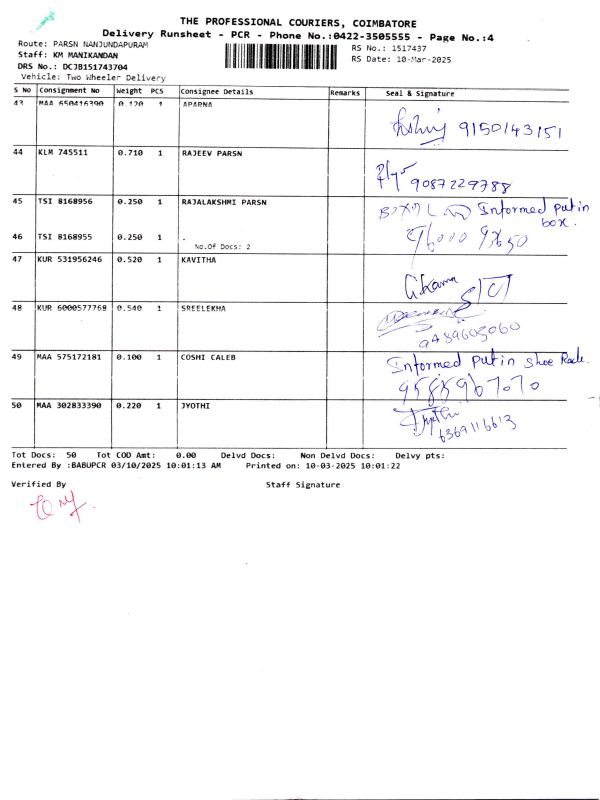 THE PROFESSIONAL COURIERS, COIMBATORE
Delivery Runsheet - PCR - Phone No.:0422-3505555 - Page No.:4
Route: PARSN NANJUNDAPURAM
RS No.: 1517437
Staff: KM MANIKANDAN
RS Date: 10-Mar-2025
DRS No.: DCJB151743704
Vehicle: Two Wheeler Delivery
S No Consignment No Weight PCS Consignee Details Remarks Seal & Signature
43 MAA 650416390 0.120 1 APARNA
9150143151
44 KLM 745511 0.710 1 RAJEEV PARSN
9087229788
45 TSI 8168956 0.250 1 RAJALAKSHMI PARSN
Informed put in box.
46 TSI 8168955 0.250 1 .
No.Of Docs: 2
47 KUR 531956246 0.520 1 KAVITHA
48 KUR 6000577768 0.540 1 SREELEKHA
49 MAA 575172181 0.100 1 COSHI CALEB
Informed put in shoe Rack.
9585967070
50 MAA 302833390 0.220 1 JYOTHI
Jyothi
6369116613
Tot Docs: 50 Tot COD Amt: 0.00 Delvd Docs: Non Delvd Docs: Delvy pts:
Entered By :BABUPCR 03/10/2025 10:01:13 AM Printed on: 10-03-2025 10:01:22
Verified By Staff Signature